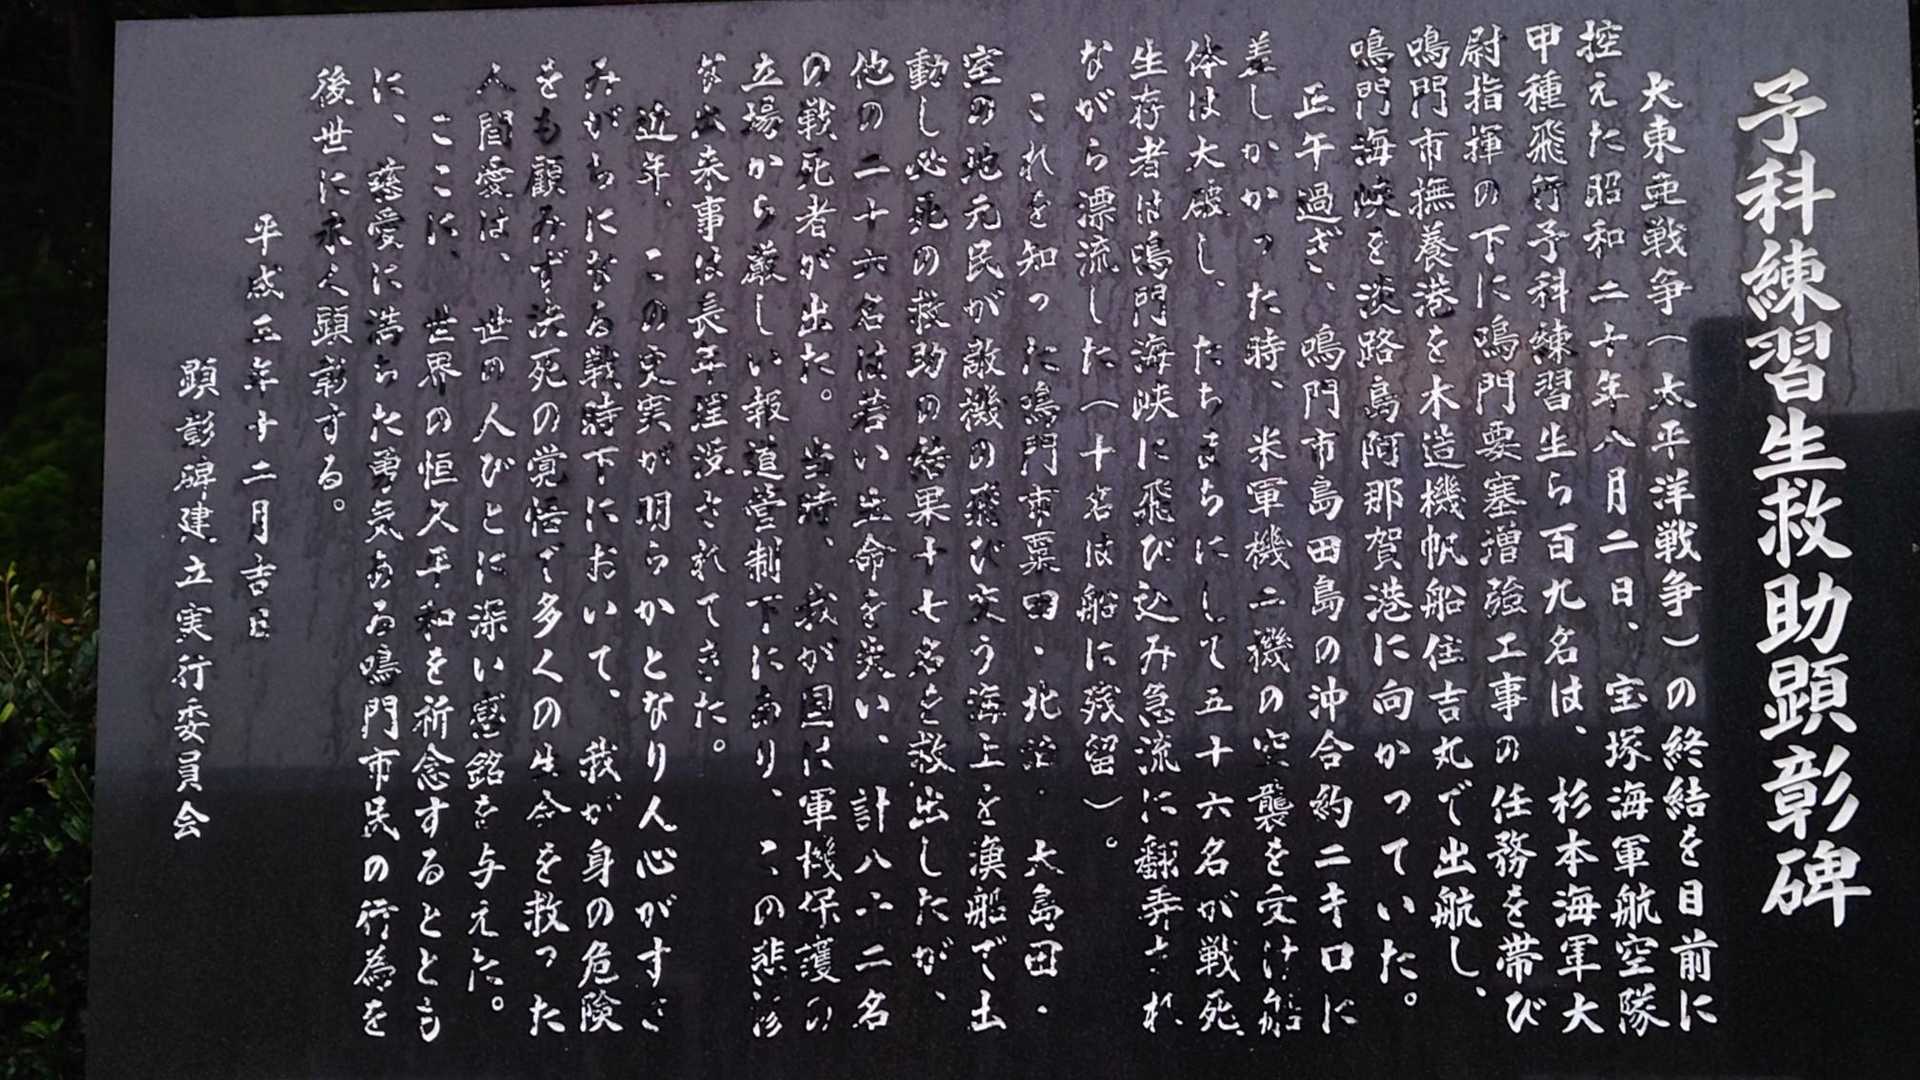 予科練習生救助顕彰碑
大東亜戦争(太平洋戦争)の終結を目前に
控えた昭和二十年八月二日、宝塚海軍航空隊
甲種飛行予科練習生ら百九名は、杉本海軍大
尉指揮の下に鳴門要塞増強工事の任務を帯び
鳴門市撫養港を木造機帆船住吉丸で出航し、
鳴門海峡を淡路島阿那賀港に向かっていた。
正午過ぎ、鳴門市島田島の沖合約二キロに
差しかかった時、米軍機二機の空襲を受け船
体は大破し、たちまちにして五十六名が戦死、
生存者は鳴門海峡に飛び込み急流に翻弄され
ながら漂流した(十名は船に残留)。
これを知った鳴門市粟田、北泊、大島田、
室の地元民が敵機の飛び交う海上を漁船で出
動し必死の救助の結果十七名を救出したが、
他の二十六名は若い生命を失い、計八十二名
の戦死者が出た。当時、我が国は軍機保護の
立場から厳しい報道管制下にあり、この悲惨
な出来事は長年埋没されてきた。
近年、この史実が明らかとなり人心がすさ
みがちになる戦時下において、我が身の危険
をも顧みず決死の覚悟で多くの生命を救った
人間愛は、世の人びとに深い感銘を与えた。
ここに、世界の恒久平和を祈念するととも
に、慈愛に満ちた勇気ある鳴門市民の行為を
後世に永く顕彰する。
平成五年十二月吉日
顕彰碑建立実行委員会